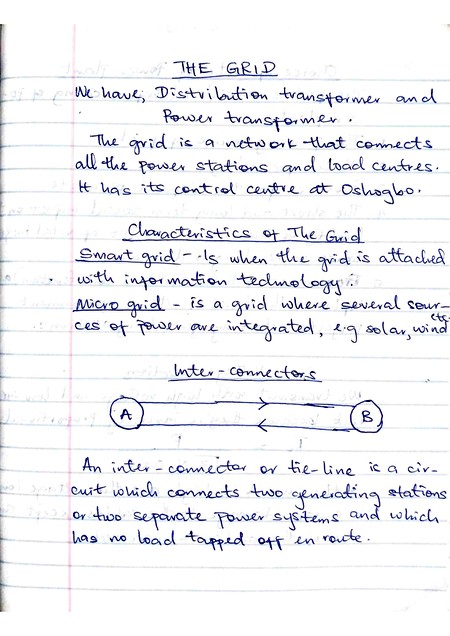 THE GRID
We have, Distribution transformer and
Power transformer.
The grid is a network that connects
all the power stations and load centres.
It has its control centre at Oshogbo.
Characteristics of The Grid
Smart grid - Is when the grid is attached
with information technology.
Micro grid - is a grid where several sour-
ces of power are integrated, e.g solar, wind etc.
Inter-connectors
A B
An inter-connector or tie-line is a cir-
cuit which connects two generating stations
or two separate power systems and which
has no load tapped off en route.